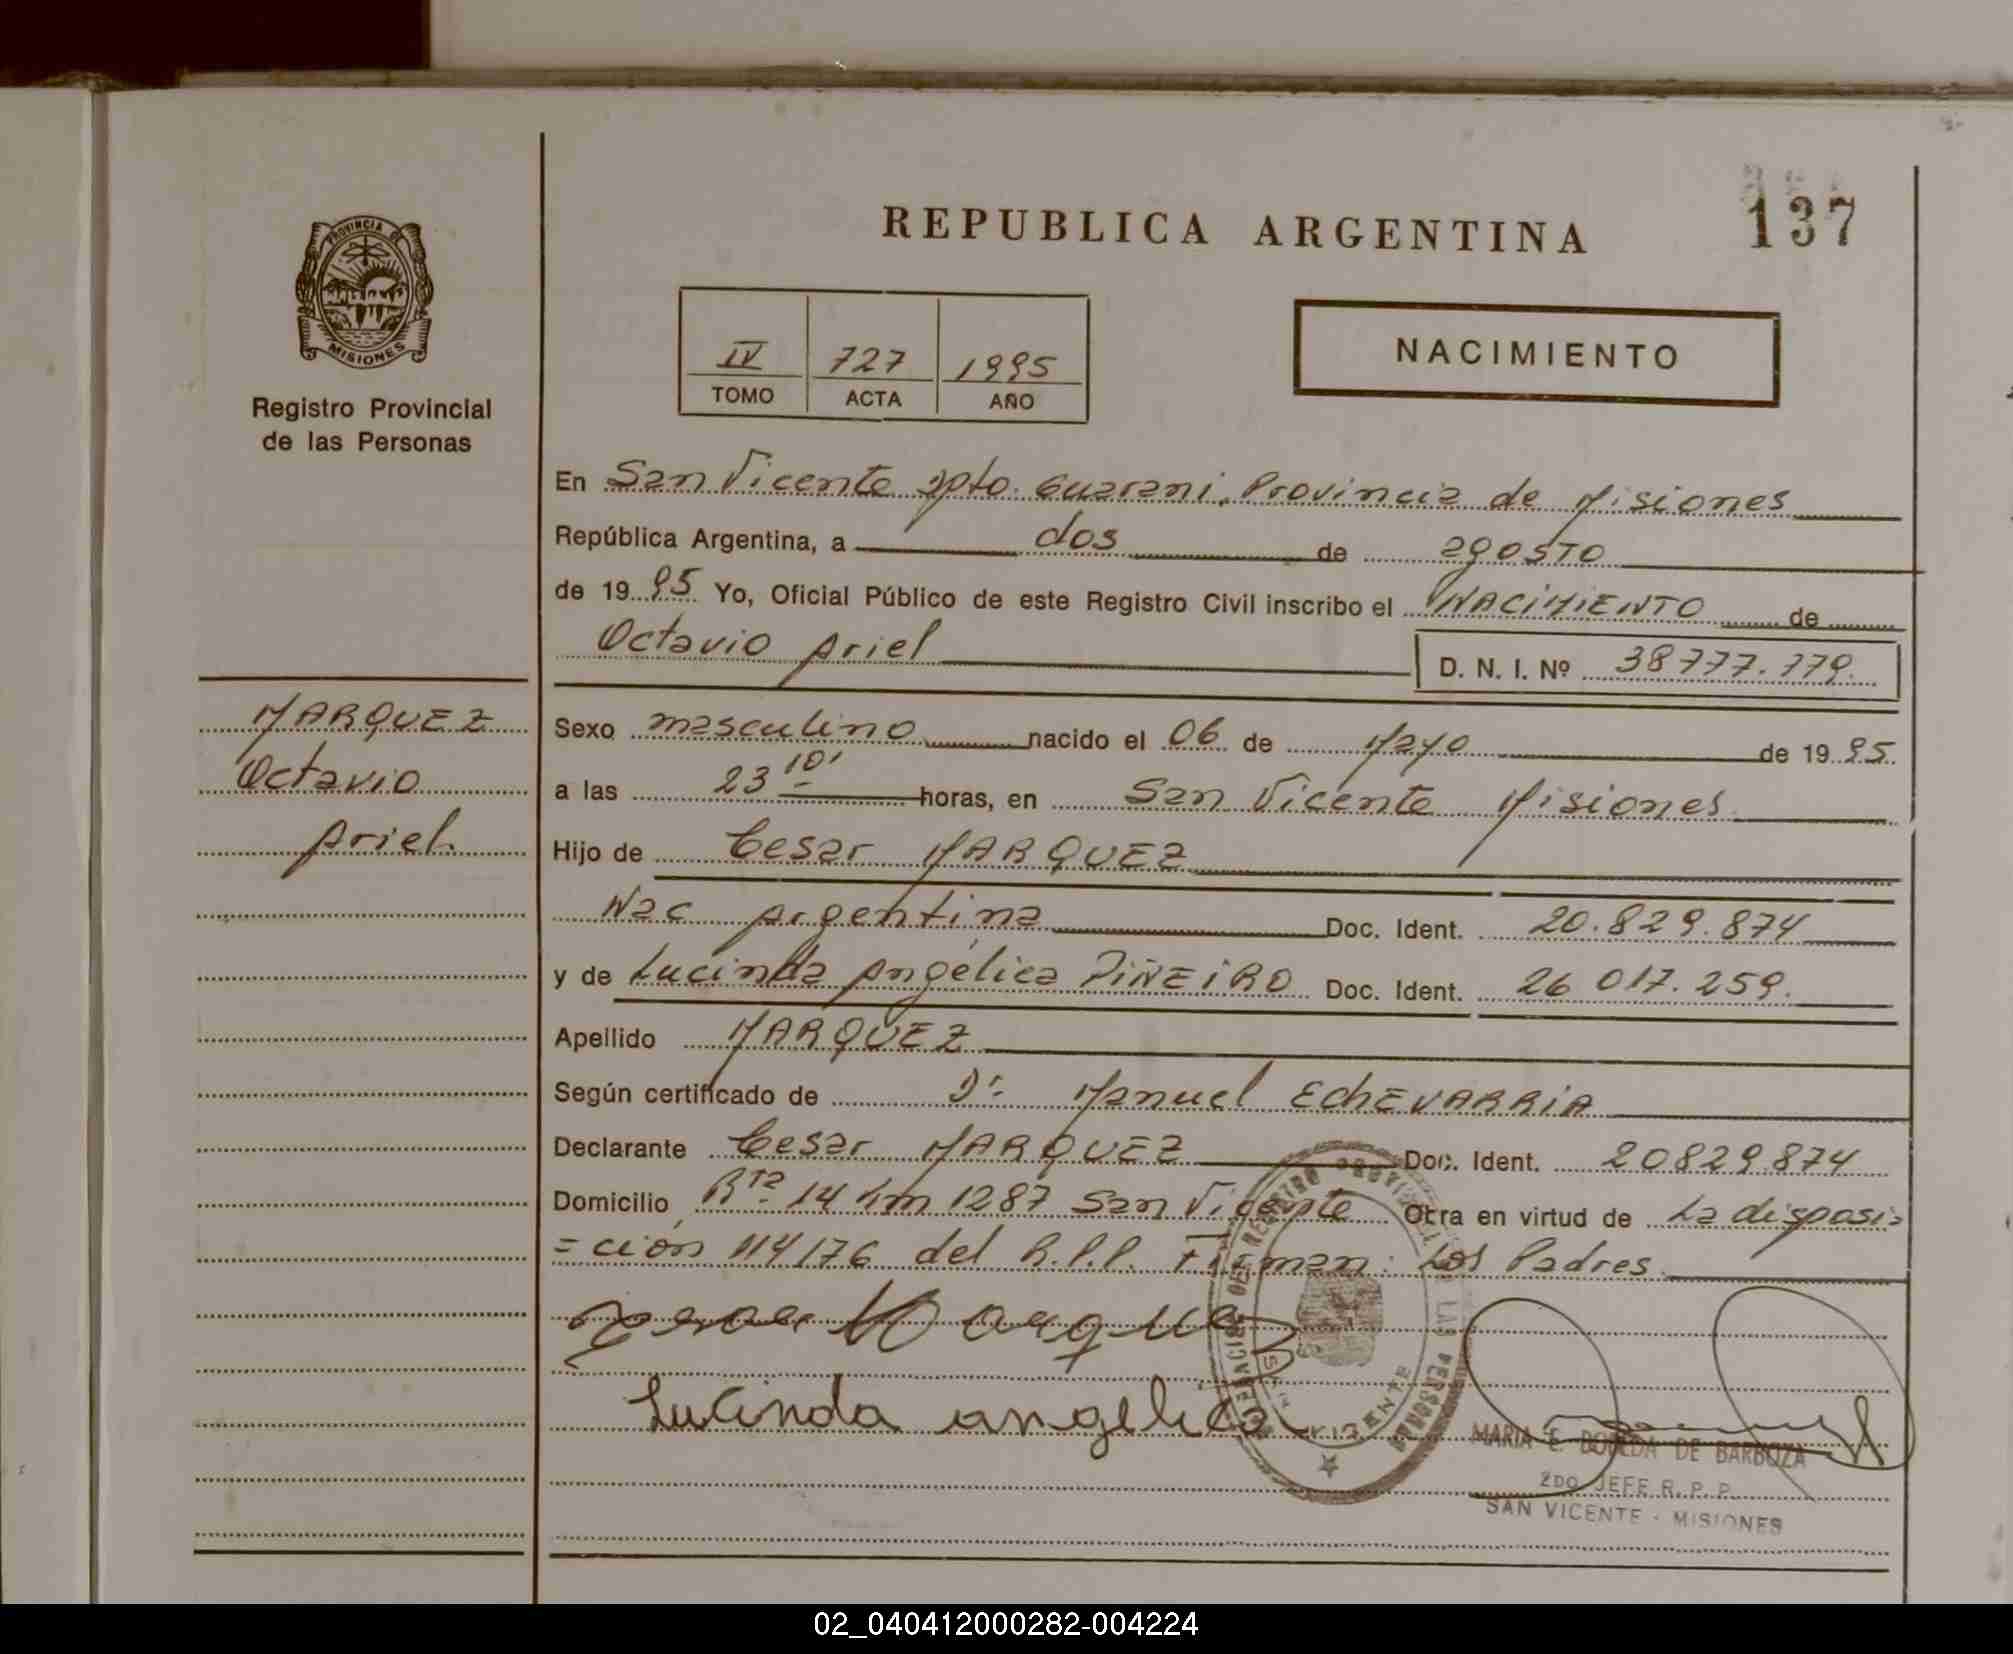 137
REPUBLICA ARGENTINA
PROVINCIA DE
MISIONES
Registro Provincial
de las Personas
IV 727 1995
TOMO ACTA AÑO
NACIMIENTO
En San Vicente Dpto. Guarani, Provincia de Misiones
República Argentina, a dos de agosto
de 19 95 Yo, Oficial Público de este Registro Civil inscribo el NACIMIENTO de
Octavio Ariel D. N. I. Nº 38777.779.
MARQUEZ
Octavio
Ariel.
Sexo masculino nacido el 06 de Mayo de 19 95.
a las 23 10' horas, en San Vicente Misiones.
Hijo de Cesar MARQUEZ
Nac Argentina Doc. Ident. 20.829.874
y de Lucinda Angélica PIÑEIRO Doc. Ident. 26 017.259.
Apellido MARQUEZ
Según certificado de Dr. Manuel ECHEVARRIA
Declarante Cesar MARQUEZ Doc. Ident. 20829874
Domicilio Rta. 14 km 1287 San Vicente Otra en virtud de La disposi=
=ción 114/76 del R.P.P. Firman: Los Padres.
Marquez
Lucinda angelica
REGISTRO PROVINCIAL LAS PERSONAS
VICENTE
MARIA E. BOVEDA DE BARBOZA
2DO JEFE R. P. P.
SAN VICENTE - MISIONES
02_040412000282-004224